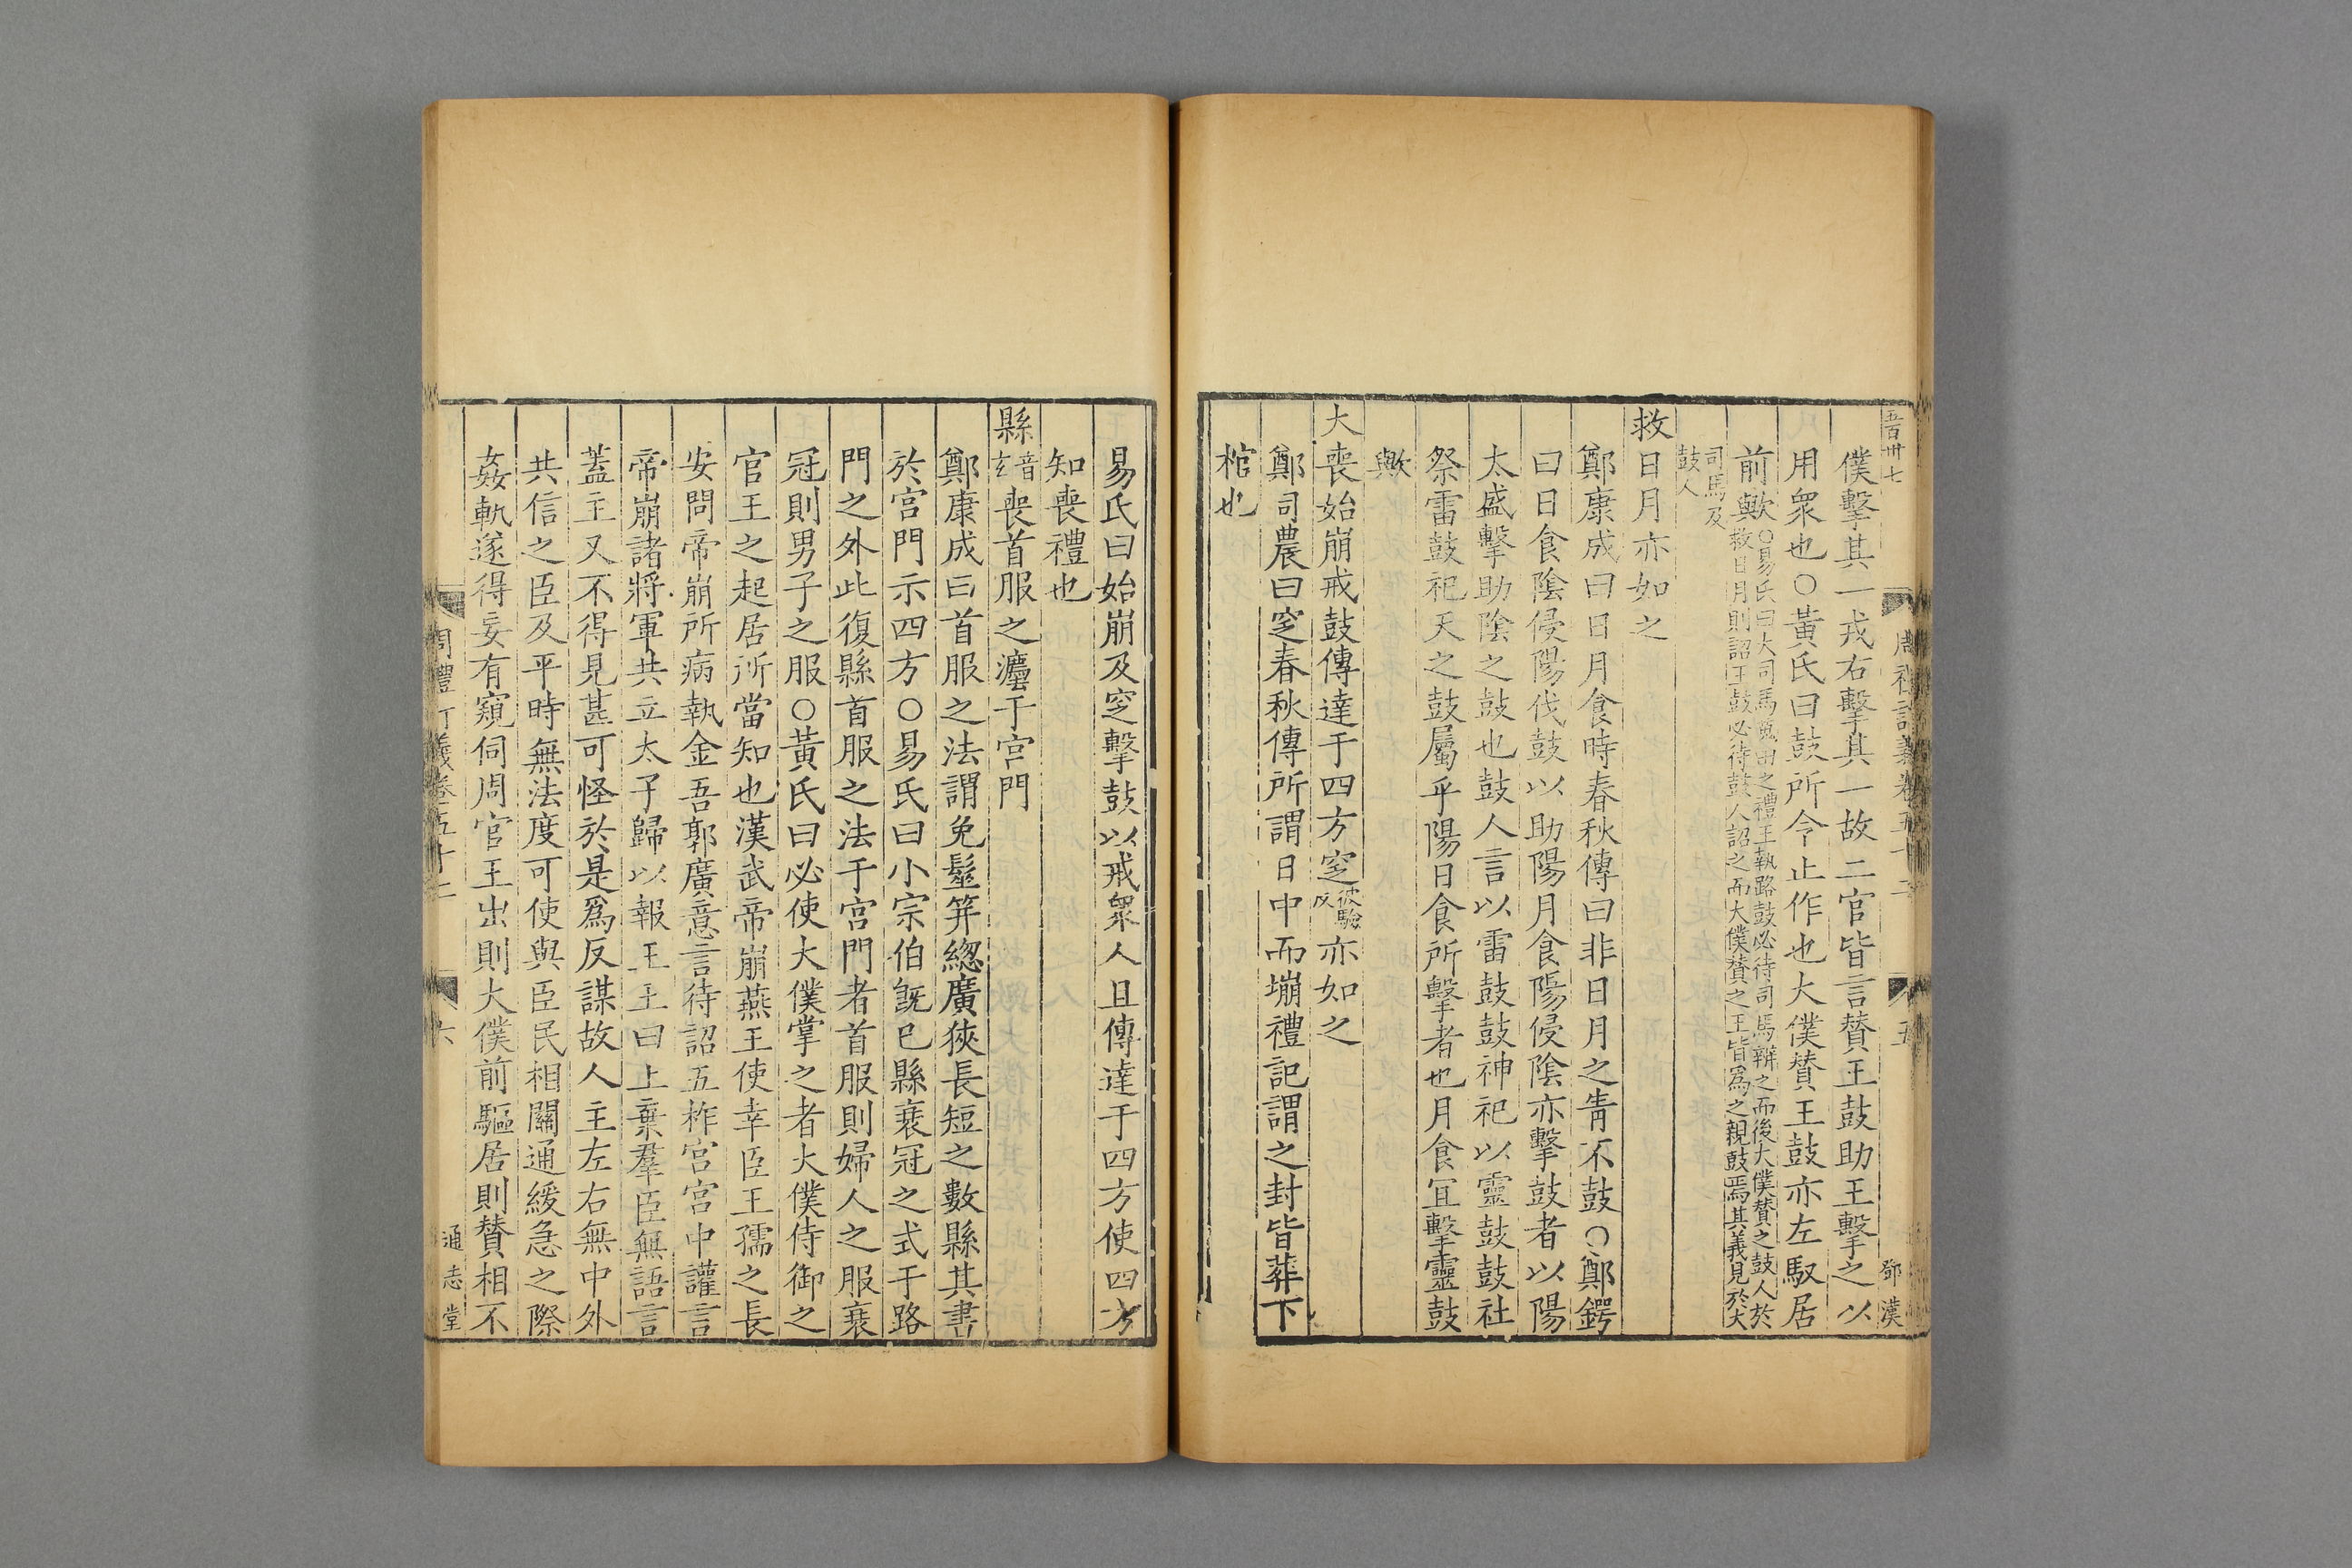 吾百卅七
周禮訂義卷五十二
五
鄧漢
僕擊其一戎右擊其一故二官皆言賛王鼓助王擊之以
用衆也○黃氏曰鼓所令止作也大僕賛王鼓亦左馭居
前歟○易氏曰大司馬蒐田之禮王執路鼓必待司馬辨之而後大僕賛之鼓人於
救日月則詔王鼓必待鼓人詔之而大僕賛之王皆爲之親鼓焉其義見於大
司馬及
鼓人
救日月亦如之
鄭康成曰日月食時春秋傳曰非日月之眚不鼓○鄭鍔
曰日食陰侵陽伐鼓以助陽月食陽侵陰亦擊鼓者以陽
太盛擊助陰之鼓也鼓人言以雷鼓鼓神祀以靈鼓鼓社
祭雷鼓祀天之鼓屬乎陽日食所擊者也月食宜擊靈鼓
歟
大喪始崩戒鼓傳達于四方窆彼驗反亦如之
鄭司農曰窆春秋傳所謂日中而塴禮記謂之封皆葬下
棺也
易氏曰始崩及窆擊鼓以戒衆人且傳達于四方使四方
知喪禮也
縣音玄喪首服之灋于宮門
鄭康成曰首服之法謂免髽笄緫廣狹長短之數縣其書
於宮門示四方○易氏曰小宗伯旣已縣衰冠之式于路
門之外此復縣首服之法于宮門者首服則婦人之服衰
冠則男子之服○黃氏曰必使大僕掌之者大僕侍御之
官王之起居所當知也漢武帝崩燕王使幸臣王孺之長
安問帝崩所病執金吾郭廣意言待詔五柞宮宮中讙言
帝崩諸將軍共立太子歸以報王王曰上棄羣臣無語言
蓋主又不得見甚可怪於是爲反謀故人主左右無中外
共信之臣及平時無法度可使與臣民相關通緩急之際
姦軌遂得妄有窺伺周官王出則大僕前驅居則賛相不
周禮訂義卷五十二
六
通志堂